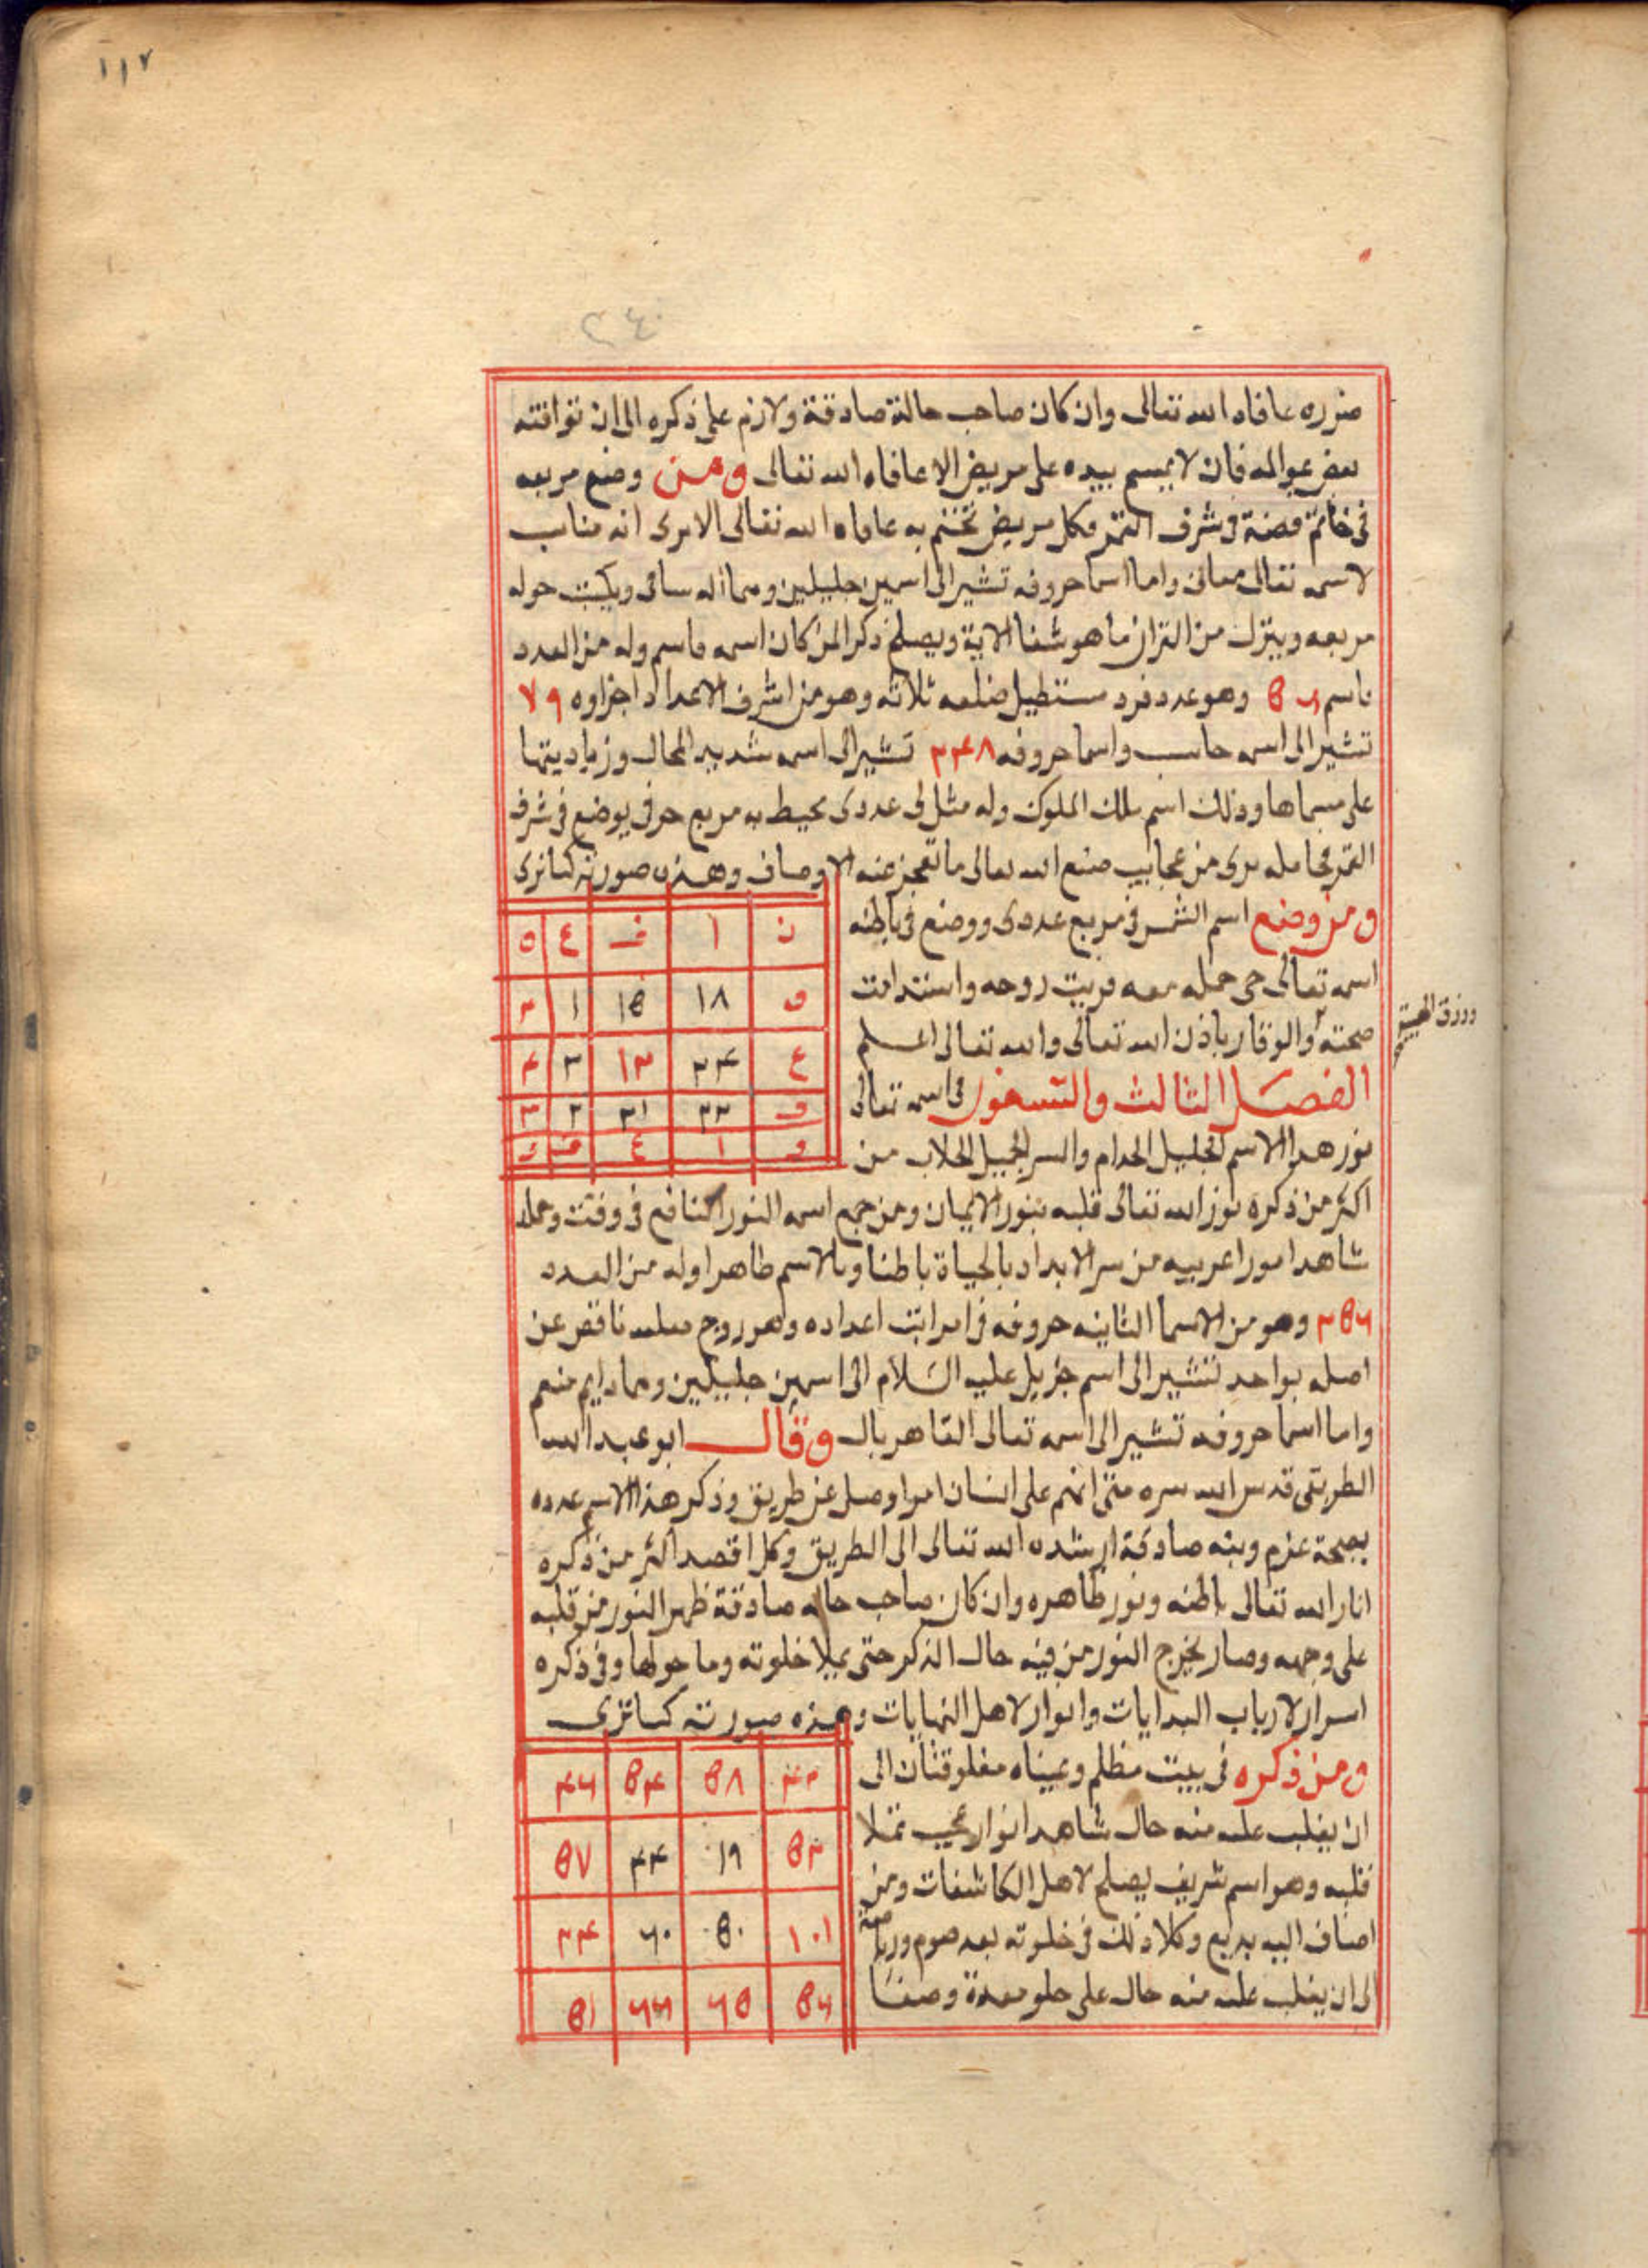 ١١٧
٢٤٠
ضرره عافاه الله تعالى وان كان صاحب حالة صادقة ولازم على ذكره الى ان توافقه
بعض عوالمه فان لا يمسح بيده على مريض الا عافاه الله تعالى ومن وضع مربعه
فى خاتم فضة فى شرف القمر وكل مريض تختم به عافاه الله تعالى الا يرى انه مناسب
لاسمه تعالى معافى واما اسما حروفه تشير الى اسمين جليلين وهما اله ساقى ويكتب حوله
مربعه وينزل من القران ما هو شفا الاية ويصلح ذكرا لمن كان اسمه قاسم وله من العدد
وهو عدد فرد مستطيل ضلعه ثلاثه وهو من اشرف الاعداد اجزاوه ٧٩
تشير الى اسمه حاسب واسما حروفه ٣٤٨ تشير الى اسمه شديد المحال وزيادتها
على مسماها وذلك اسم ملك الملوك وله مثل فى عددى يحيط به مربع حرفى يوضع فى شرف
القمر فحامله يرى من عجايب صنع الله تعالى ما تعجز عنه الاوصاف وهذه صورته كما ترى
ومن وضع اسم الشمس فى مربع عددى ووضع فى باطنه
اسمه تعالى حى حمله معه قويت روحه واستدامت
صحته والوقار باذن الله تعالى والله تعالى اعلم
ورزق الهيبة
ن ا ف ع ٥
١٨ ١٥ ١ ٣
ع ٣٤ ١٣ ٣ ٤
٣٣ ٣١ ٢ ٣
ا ع ف
الفصل الثالث والتسعون فى اسمه تعالى
نور هذا الاسم الجليل الحدام والسر الجميل الحلاب من
اكثر من ذكره نور الله تعالى قلبه بنور الايمان ومن جمع اسمه النور النافع فى وقت وحمله
شاهد امورا غريبه من سر الابداد بالحياة باطنا وبالاسم ظاهرا وله من العدد
٢٥٦ وهو من الاسما الثابته حروفه فى مراتب اعداده وهو زوج ناقص عن
اصله بواحد تشير الى اسم جبريل عليه السلام الى اسمين جليلين وهما دايم منعم
واما اسما حروفه تشير الى اسمه تعالى القاهر بال وقال ابو عبد الله
الطريقى قدس الله سره متى انبهم على انسان امر اوصل عن طريق وذكر هذا الاسم عدده
بصحة عزم ونيه صادقة ارشده الله تعالى الى الطريق وكل اقصد اكثر من ذكره
انار الله تعالى باطنه ونور ظاهره وان كان صاحب حاله صادقة ظهر النور من قلبه
على وجهه وصار يخرج النور من فيه حال الذكر حتى يملا خلوته وما حولها وفى ذكره
اسرار لارباب البدايات وانوار لاهل النهايات وهذه صورته كما ترى
ومن ذكره فى بيت مظلم وعيناه مغلوقتان الى
ان يغلب عليه منه حال شاهد انوار عجيب تملا
قلبه وهو اسم شريف يصلح لاهل المكاشفات ومن
اضاف اليه بديع وتلا ذلك فى خلوته بعد صوم ورياضة
الى ان يغلب عليه منه حال على خلو معدة وصفا
٤٣ ٥٨ ٥٤ ٤٦
٥٣ ١٩ ٤٤ ٥٧
١٠١ ٥٠ ٦٠ ٣٤
٥٦ ٦٥ ٦٣ ٥١